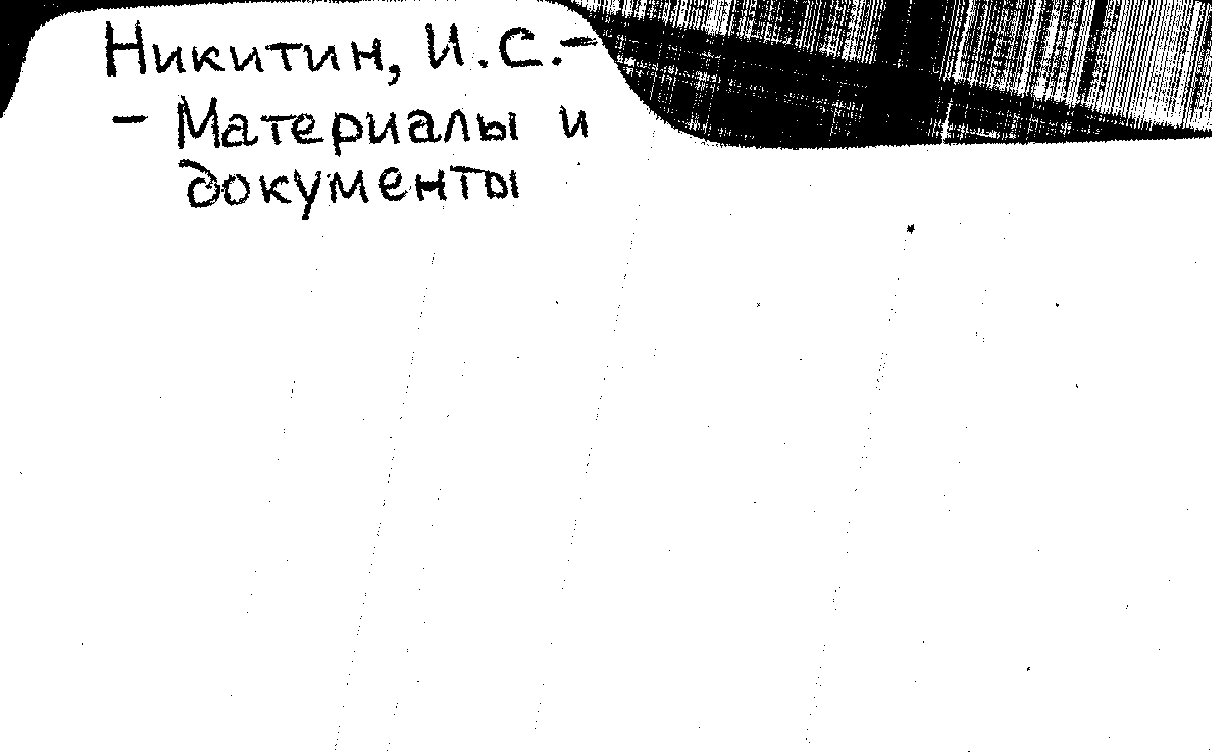 Никитин, И.С.-
- Материалы и
документы